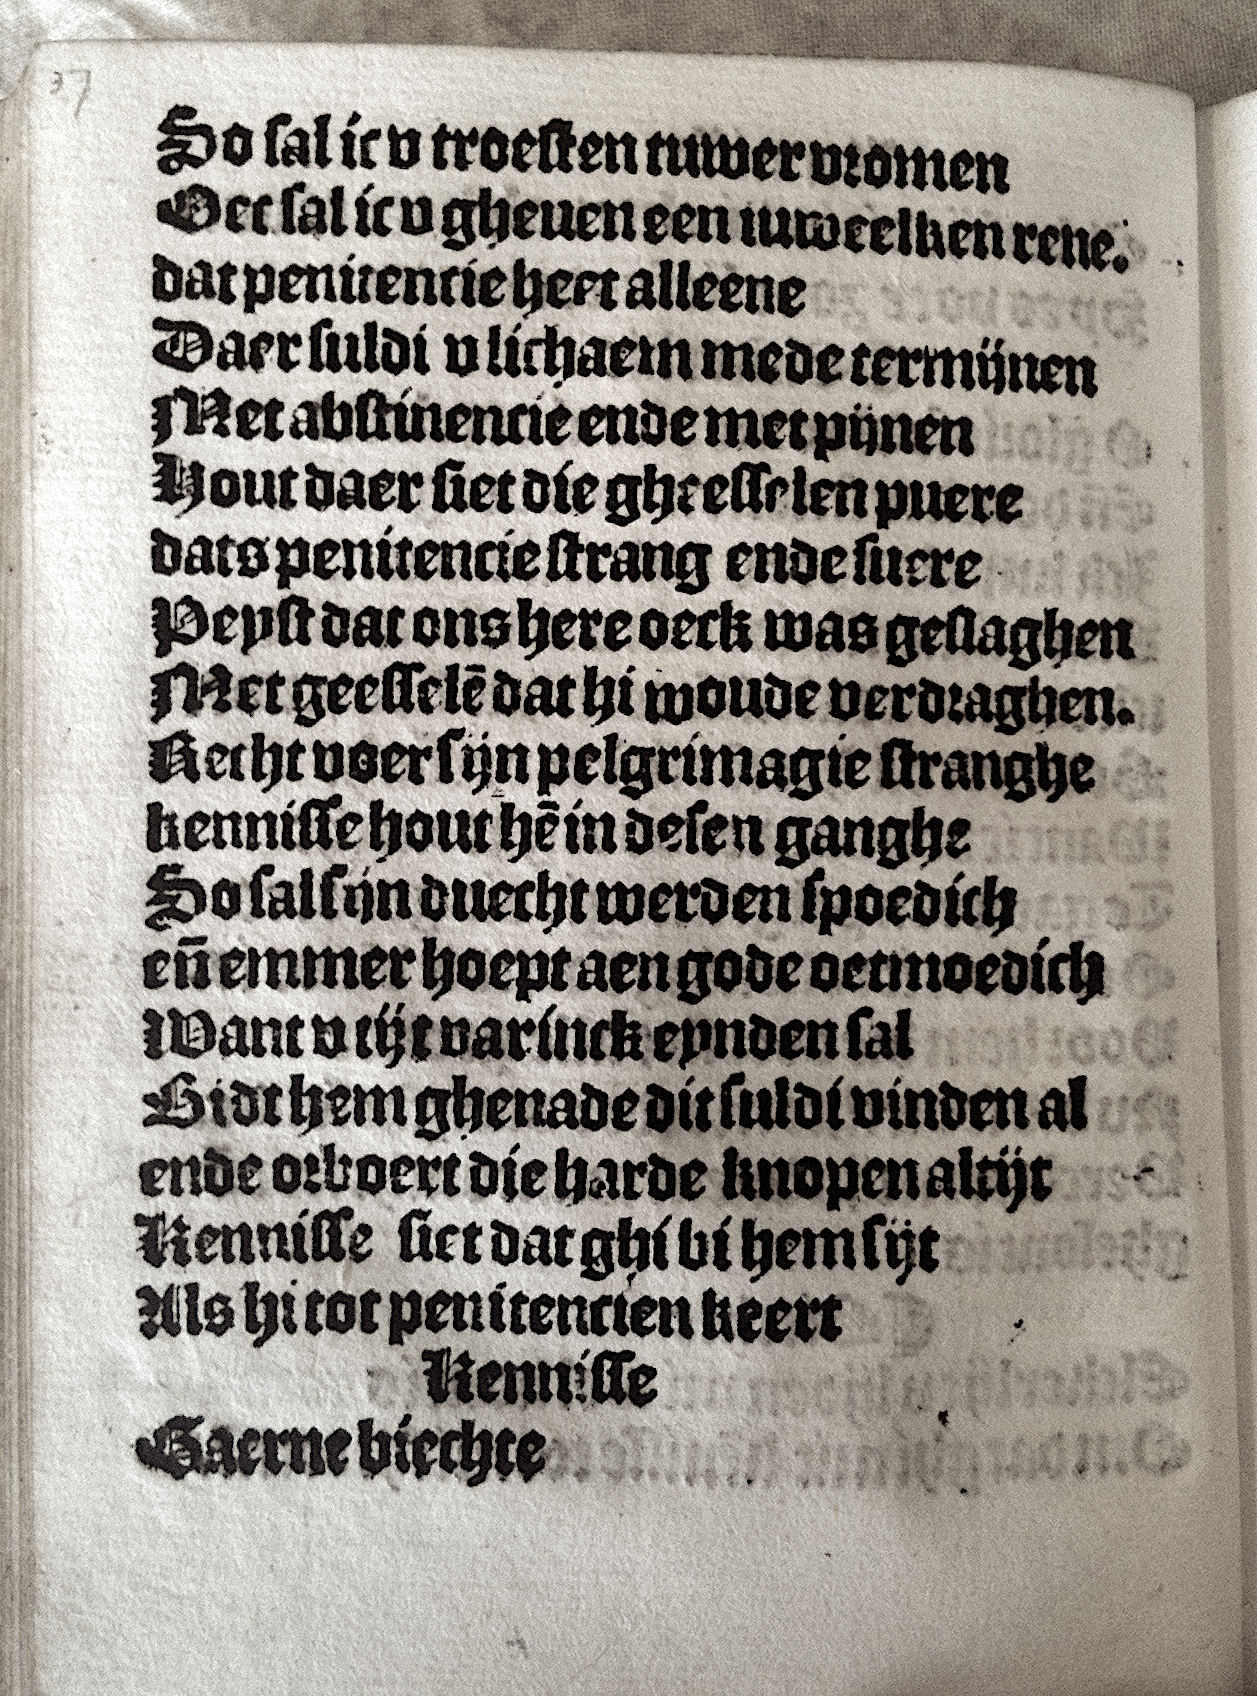 37
So sal ic v troesten tuwer vromen
Oec sal ic v gheuen een iuweelken rene.
dat penitencie heet alleene
Daer suldi v lichaem mede termijnen
Met abstinencie ende met pijnen
Hout daer siet die gheesselen puere
dats penitencie strang ende suere
Peyst dat ons here oeck was geslaghen
Met geesselē dat hi woude verdraghen.
Recht voer sijn pelgrimagie stranghe
kennisse hout hē in desen ganghe
So sal sijn duecht werden spoedich
en̄ emmer hoept aen gode oetmoedich
Want v tijt varinck eynden sal
Bidt hem ghenade dit suldi vinden al
ende orboert die harde knopen altijt
Kennisse siet dat ghi bi hem sijt
Als hi tot penitencien keert
Kennisse
Gaerne biechte